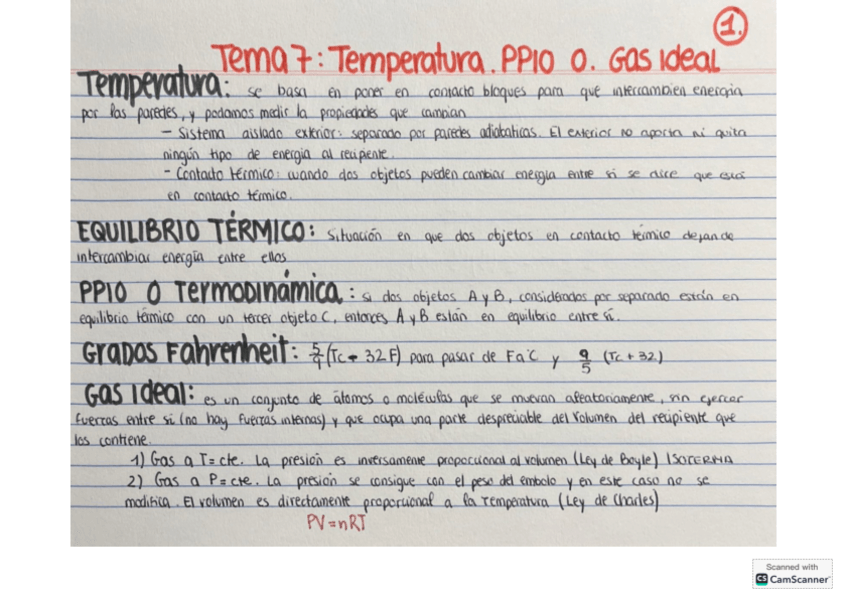 1.
Tema 7: Temperatura. PPIO 0. Gas Ideal
Temperatura: se basa en poner en contacto bloques para que intercambien energia
por las paredes, y podamos medir la propiedades que cambian
- Sistema aislado exterior: separado por paredes adiabaticas. El exterior no aporta ni quita
ningún tipo de energia al recipiente.
- Contacto térmico: cuando dos objetos pueden cambiar energia entre si se dice que está
en contacto térmico.
EQUILIBRIO TÉRMICO: Situación en que dos objetos en contacto térmico dejan de
intercambiar energía entre ellos
PPIO 0 Termodinámica: si dos objetos A y B, considerados por separado están en
equilibrio térmico con un tercer objeto C, entonces A y B están en equilibrio entre sí.
Grados Fahrenheit: 5/9 (Tc - 32 F) para pasar de F a °C y 9/5 (Tc + 32)
Gas Ideal: es un conjunto de átomos o moléculas que se muevan aleatoriamente, sin ejercer
fuerzas entre sí (no hay fuerzas internas) y que ocupa una parte despreciable del volumen del recipiente que
los contiene.
1) Gas a T = cte. La presión es inversamente proporcional al volumen (Ley de Boyle) ISOTERMA
2) Gas a P = cte. La presión se consigue con el peso del embolo y en este caso no se
modifica. El volumen es directamente proporcional a la temperatura (Ley de Charles)
PV = nRT
Scanned with
CS CamScanner